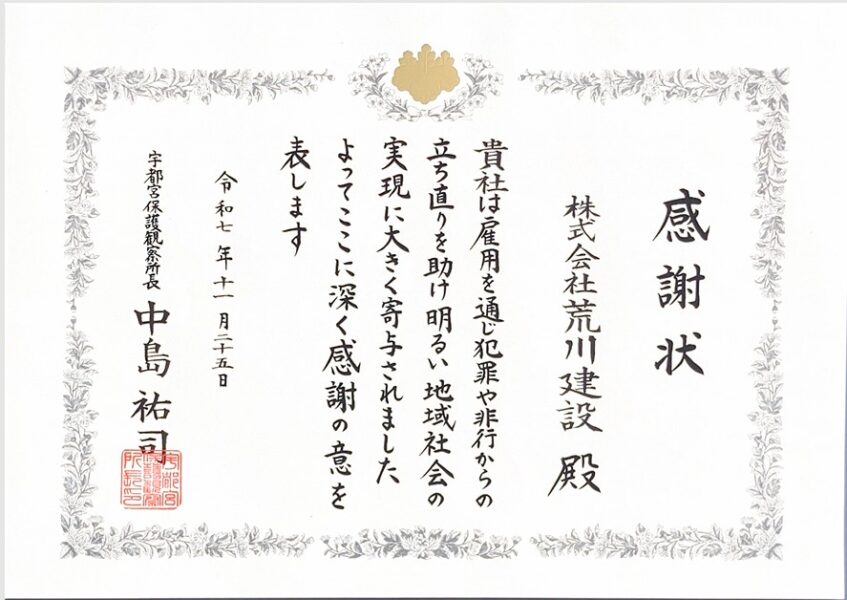 感謝状
株式会社荒川建設 殿
貴社は雇用を通じ犯罪や非行からの
立ち直りを助け明るい地域社会の
実現に大きく寄与されました
よってここに深く感謝の意を
表します
令和七年十一月二十五日
宇都宮保護観察所長 中島祐司